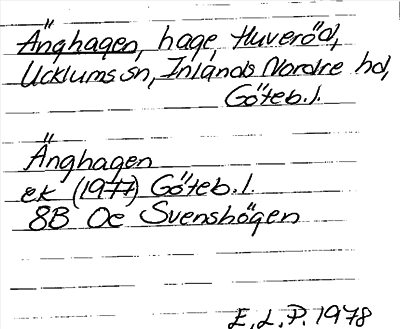 Änghagen, hage, Huveröd,
Ucklums sn, Inlands Nordre hd,
Göteb.l.
Änghagen
ek (1977) Göteb.l.
8B Oc Svenshögen
E.L.P. 1978